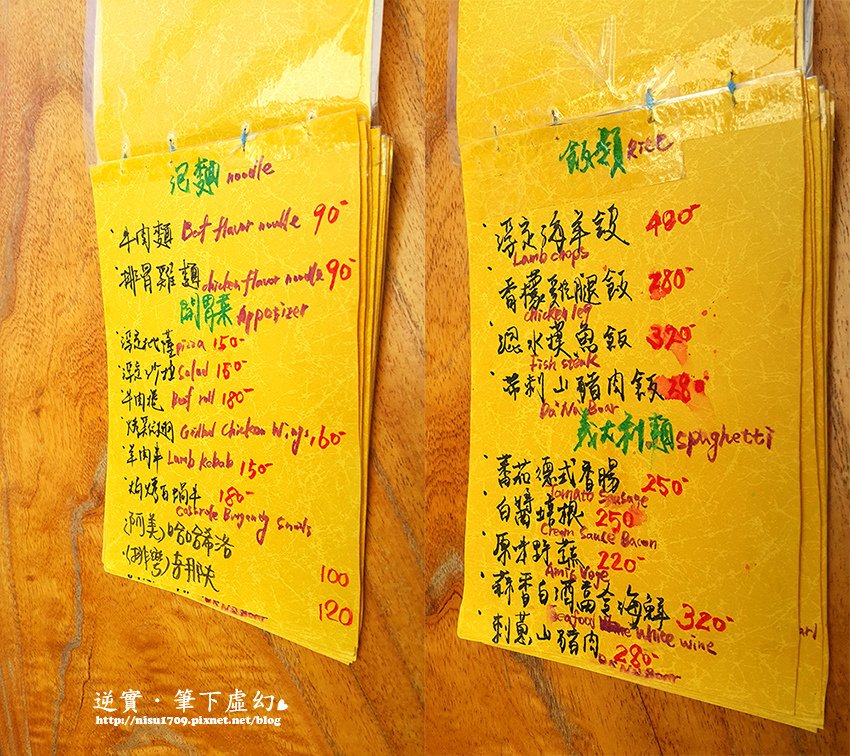 泡麵 noodle
牛肉麵 Beef flavor noodle 90-
排骨雞麵 chicken flavor noodle 90-
開胃菜 Appetizer
pizza 150-
沙拉 Salad 150-
牛肉捲 Beef roll 180-
烤雞翅 Grilled Chicken Wings 160-
羊肉串 Lamb Kebab 150-
焗烤白蝸牛 180-
(阿美)哈哈希洛 100
(排灣)奇那 120
飯類 Rice
海羊飯 480-
Lamb chops
香檬雞腿飯 280-
chicken leg
魚飯 320-
Fish steak
山豬肉飯 280-
Da'Nu Boar
義大利麵 spaghetti
蕃茄德式香腸 250-
Tomato Sausage
白醬培根 250-
Cream Sauce Bacon
原味野蔬 220-
Amis Vege
蒜香白酒富含海鮮 320-
Seafood White wine
刺蔥山豬肉 280-
逆實·筆下虛幻
http://nisu1709.pixnet.net/blog